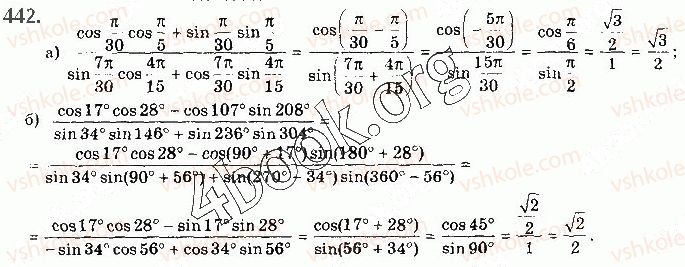 442.
а) (cos π/30 cos π/5 + sin π/30 sin π/5)/(sin 7π/30 cos 4π/15 + cos 7π/30 sin 4π/15) = cos(π/30 − π/5)/sin(7π/30 + 4π/15) = cos(−5π/30)/sin 15π/30 = cos π/6/sin π/2 = (√3/2)/1 = √3/2 ;
б) (cos17° cos28° − cos107° sin208°)/(sin34° sin146° + sin236° sin304°) =
= (cos17° cos28° − cos(90° + 17°)sin(180° + 28°))/(sin34° sin(90° + 56°) + sin(270° − 34°)sin(360° − 56°)) =
= (cos17° cos28° − sin17° sin28°)/(−sin34° cos56° + cos34° sin56°) = cos(17° + 28°)/sin(56° + 34°) = cos45°/sin90° = (√2/2)/1 = √2/2 .
4book.org
vshkole.com